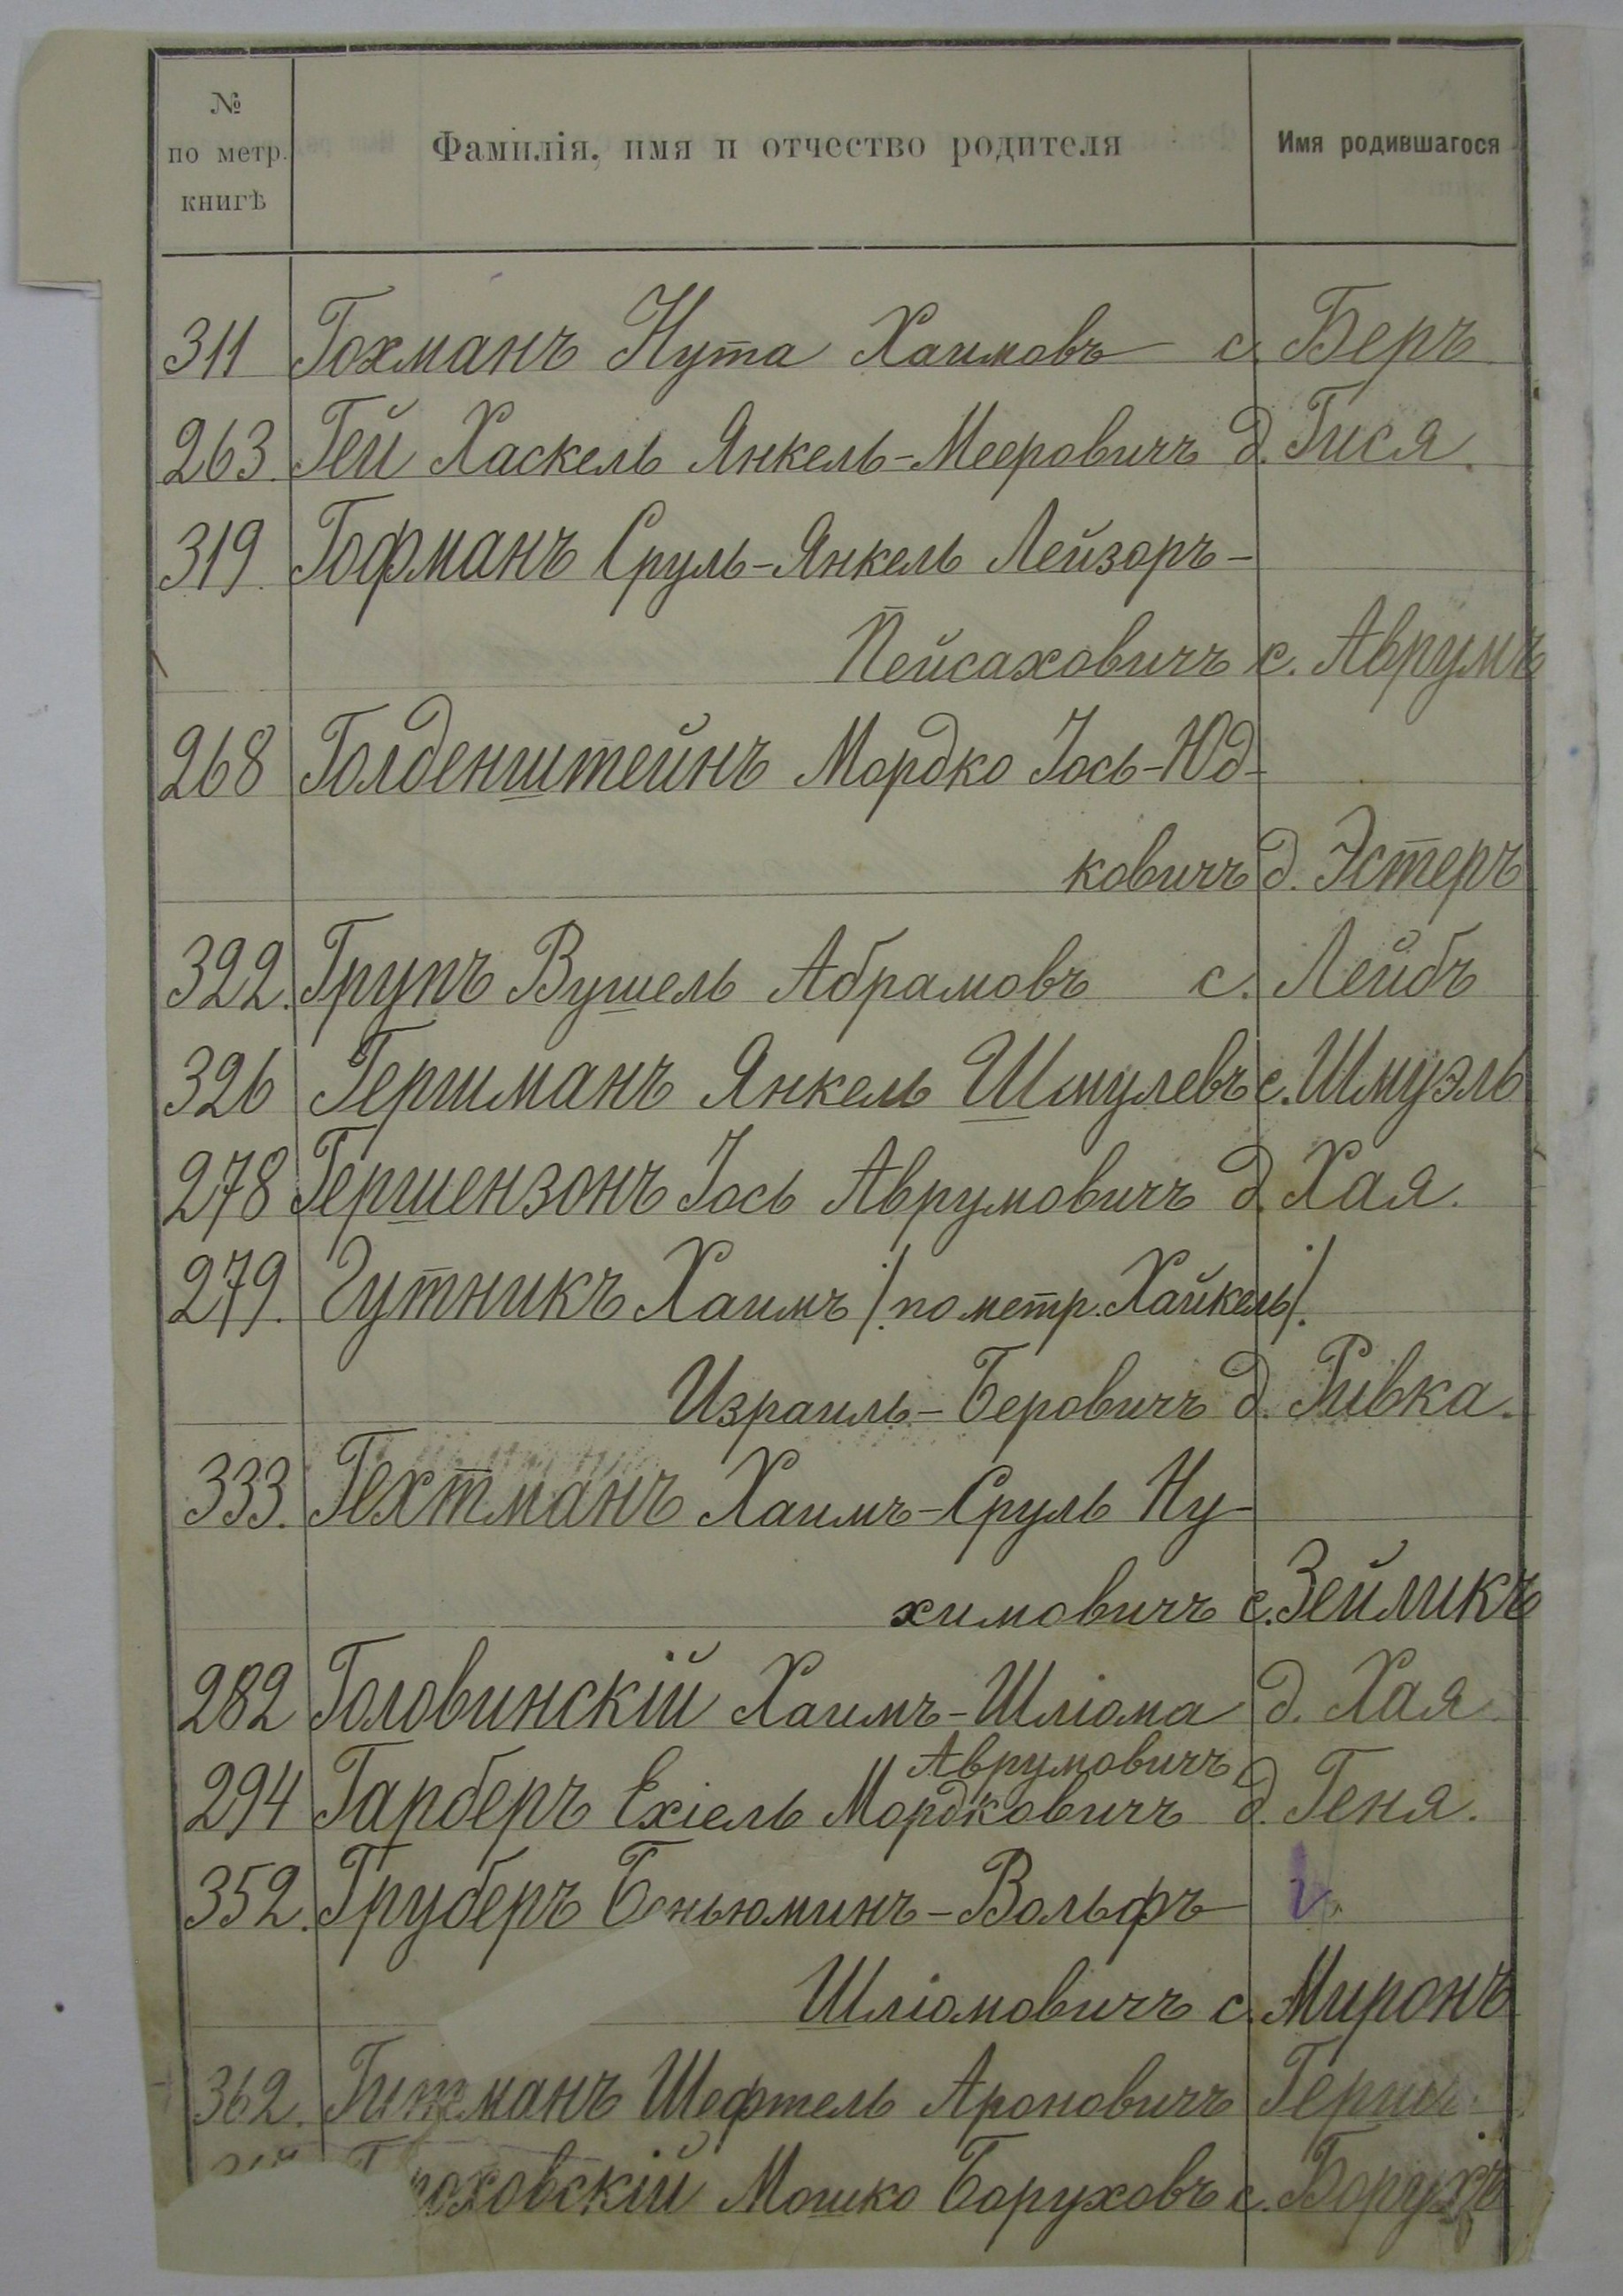 № по метр. книгѣ Фамилія, имя и отчество родителя Имя родившагося
311 Гохманъ Нута Хаимовъ с. Беръ
263. Гей Хаскель Янкель-Мееровичъ д. Гися.
319. Гофманъ Сруль-Янкель Лейзоръ-
Пейсаховичъ с. Аврумъ
268 Голденштейнъ Мордко Іось-Юд-
ковичъ д. Эстеръ
322. Групъ Вушель Абрамовъ с. Лейбъ
326 Гершманъ Янкель Шмулевъ с. Шмуэль
278 Гершензонъ Іось Аврумовичъ д. Хая.
279. Гутникъ Хаимъ /. по метр. Хайкель/.
Израиль-Беровичъ д. Ривка.
333. Гехтманъ Хаимъ-Сруль Ну-
химовичъ с. Зейликъ
282 Головинскій Хаимъ-Шліома д. Хая.
Аврумовичъ
294 Гарберъ Ехіель Мордковичъ д. Геня.
352. Груберъ Беньюминъ-Вольфъ
Шліомовичъ с. Миронъ
362. Шефтель Ароновичъ
ховскій Мошко Боруховъ с. Борухъ